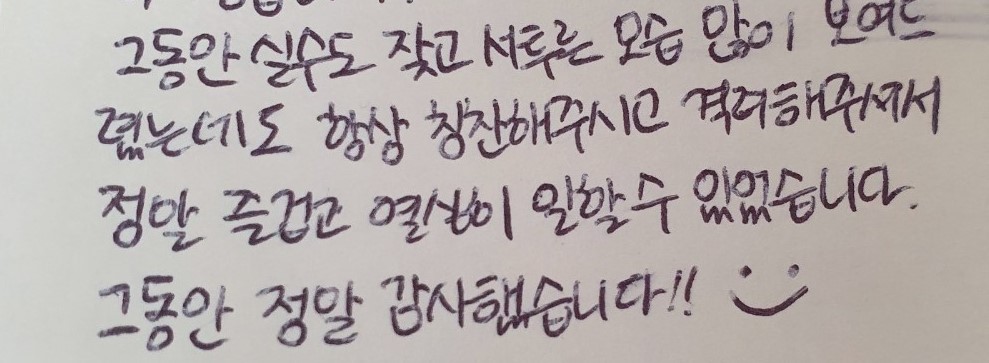 그동안 실수도 잦고 서투른 모습 많이 보여드
렸는데도 항상 칭찬해주시고 격려해주셔서
정말 즐겁고 열심히 일할 수 있었습니다.
그동안 정말 감사했습니다!!